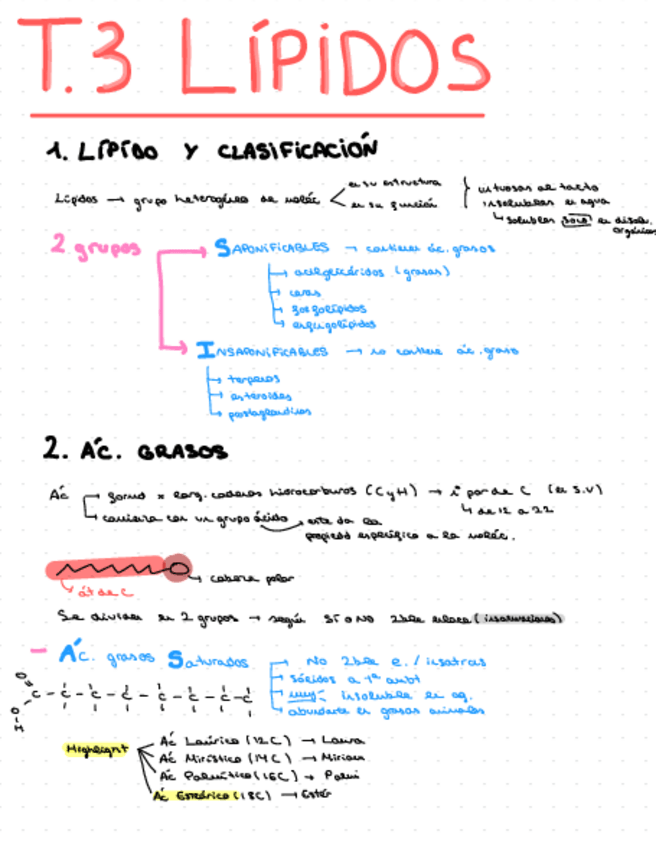 T.3 LÍPIDOS
1. LÍPIDO Y CLASIFICACIÓN
Lípidos → grupo heterogéneo de moléc
en su estructura
en su función
untuosas al tacto
insolubles en agua
↳ solubles solo en disol. orgánicos
2 grupos
SAPONIFICABLES → contienen ác. grasos
→ acilglicéridos (grasas)
→ ceras
→ fosfolípidos
→ esfingolípidos
INSAPONIFICABLES → no contiene ác. graso
→ terpenos
→ esteroides
→ prostaglandinas
2. ÁC. GRASOS
Ác
→ formd x larg. cadenas hidrocarburos (C y H) → par de C (en S.V)
↳ de 12 a 22
→ comienza con un grupo ácido → este da la
propied específica a la moléc.
↳ cabeza polar
↳ át de C
Se dividen en 2 grupos → según SÍ o NO 2ble enlace (insaturaciones)
– Ác. grasos Saturados
→ No 2ble e. / insatras
→ sólidos a tª ambt
→ muy insoluble en ag.
→ abundante en grasas animales
O
C – C – C – C – C – C – C – C
O
H
Highlight
Ác Laúrico (12C) → Laura
Ác Mirístico (14C) → Miriam
Ác Palmítico (16C) → Palmi
Ác Esteárico (18C) → Ester